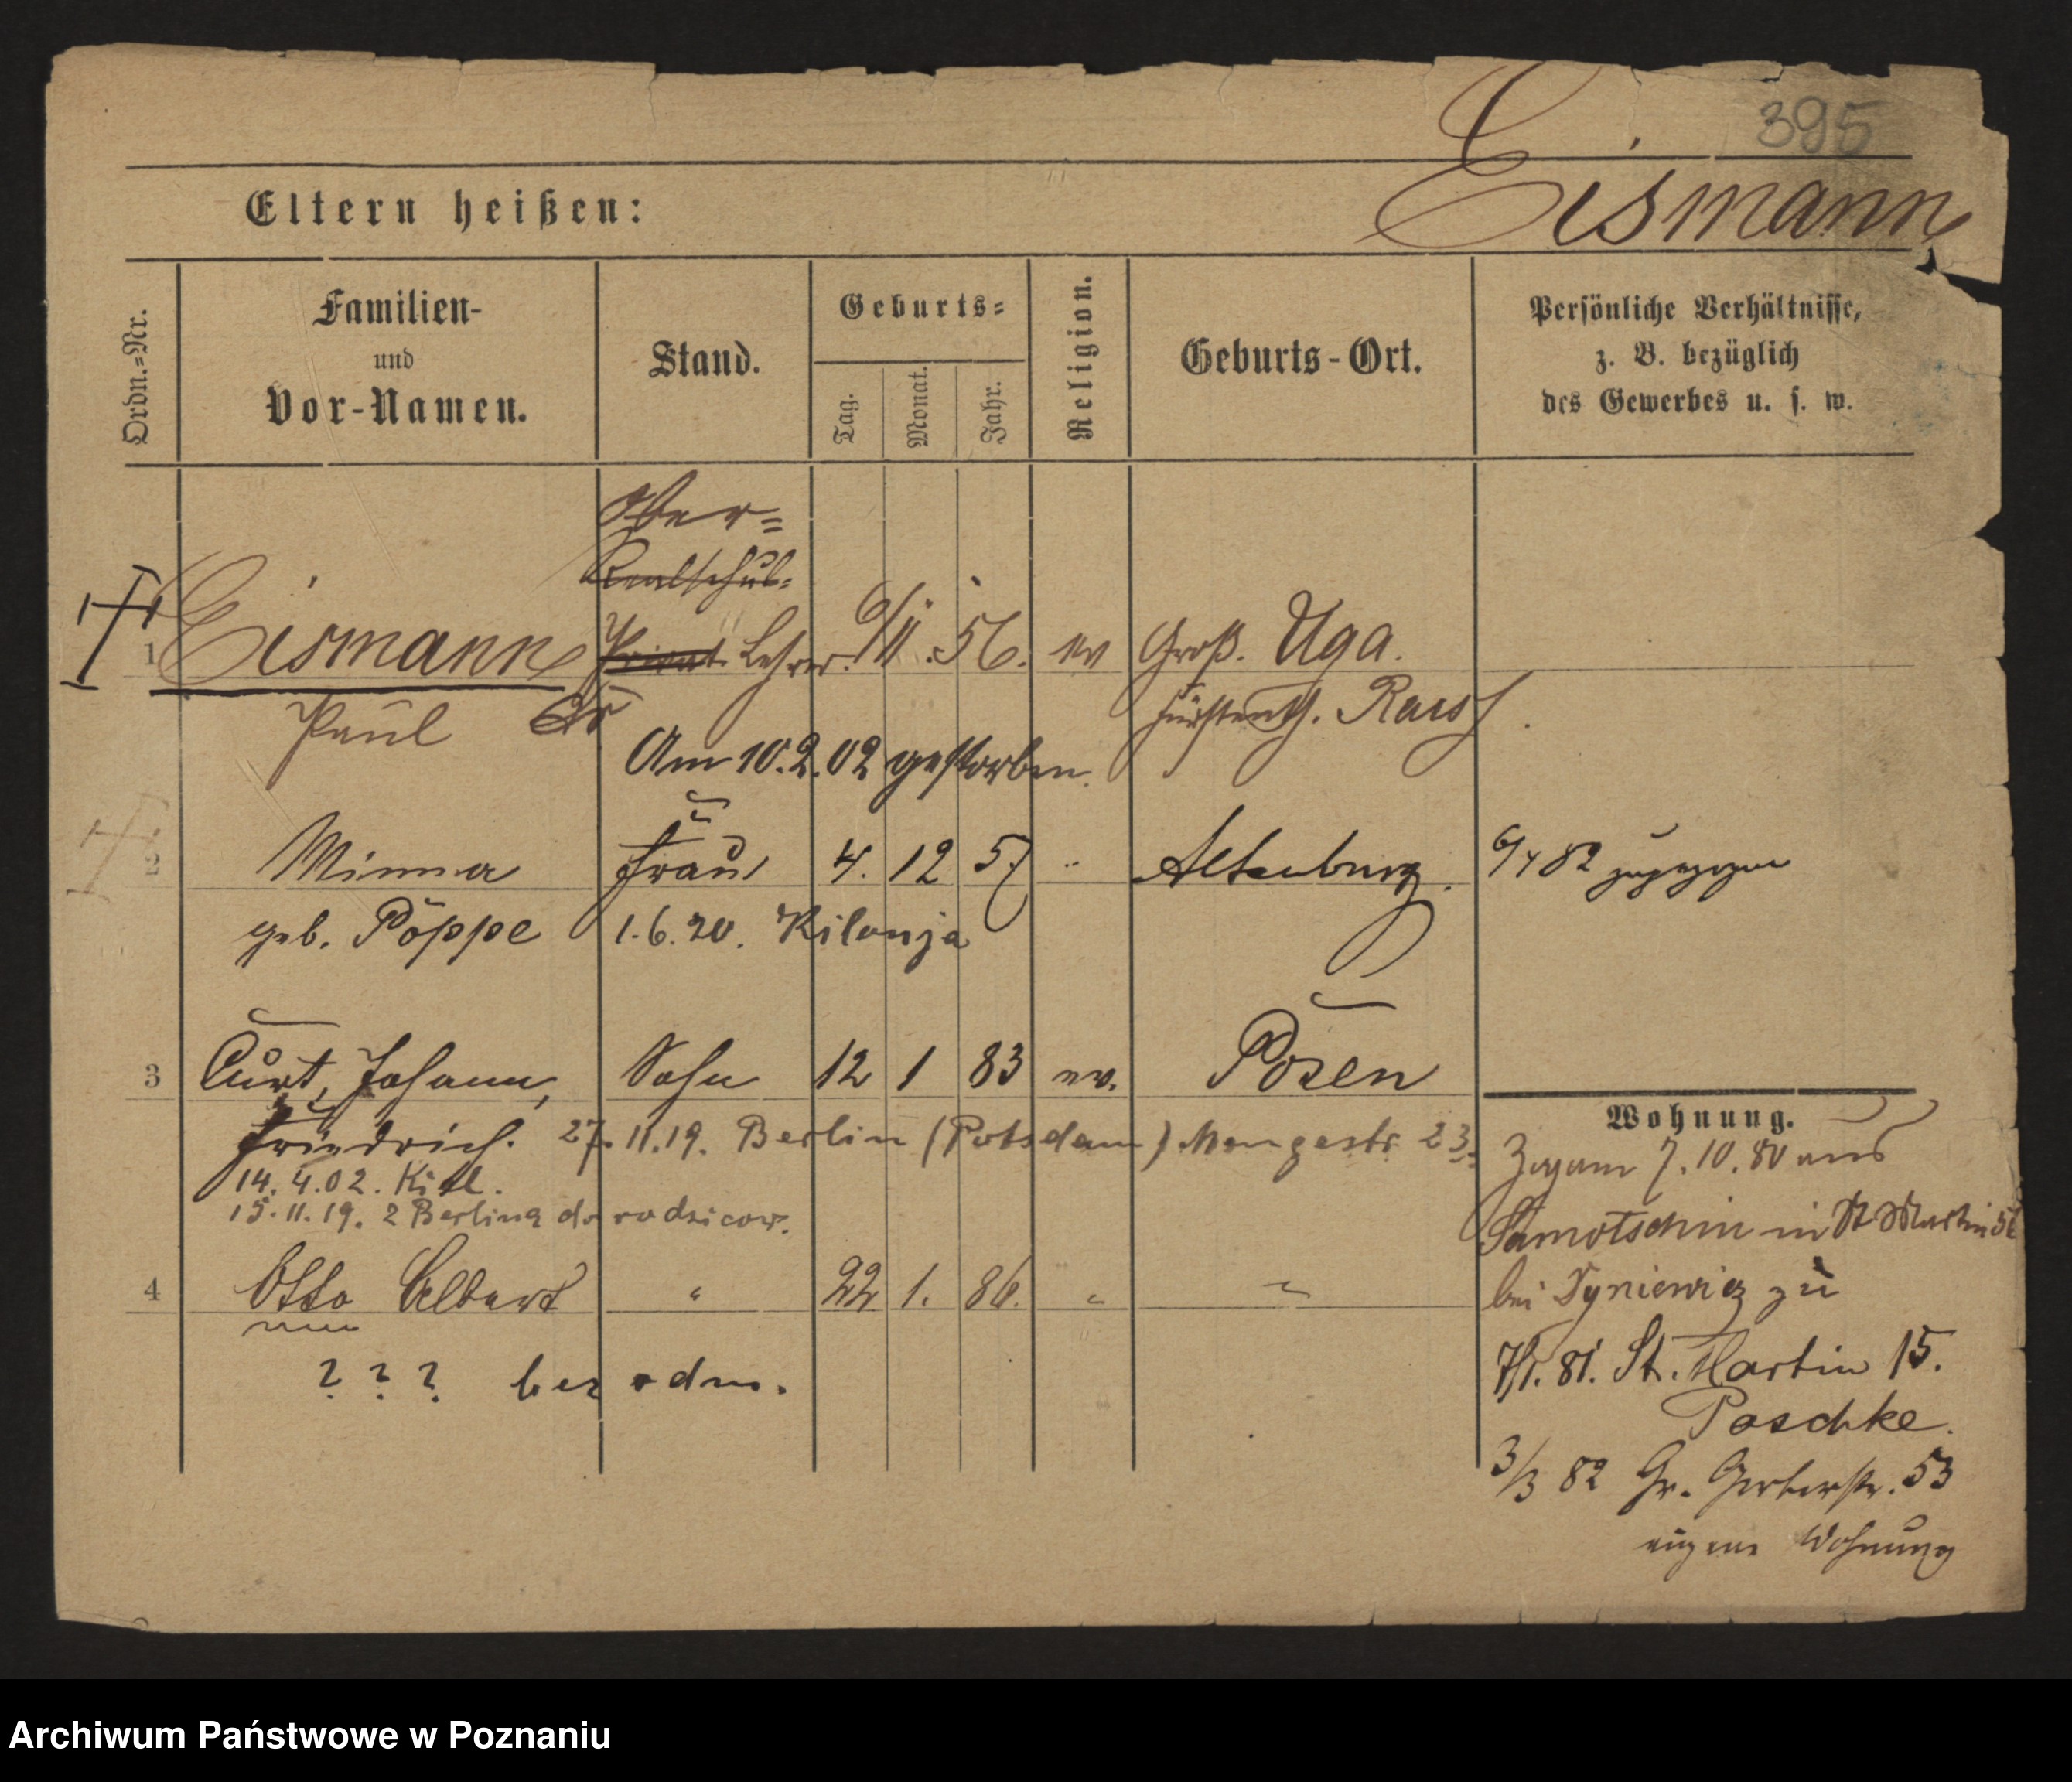 395
Eismann
Eltern heißen:
Ordn.=Nr.
Familien-
und
Vor-Namen.
Stand.
Geburts=
Tag.
Monat.
Jahr.
Religion.
Geburts-Ort.
Persönliche Verhältnisse,
z. B. bezüglich
des Gewerbes u. s. w.
Ober=
Realschul=
1 Eismann Privat Lehrer. 6/11. 56. ev Groß. Uga.
Paul Dr Fürstenth. Reuss
Am 10.2.02 gestorben.
2 Minna Frau 4. 12 57 " Altenburg. 6/4 82 zugezogen
geb. Pöppe 1.6.20. Kilonja
3 Curt, Johann, Sohn 12 1 83 ev. Posen
Friedrich. 27.11.19. Berlin (Potsdam) 23
14.4.02. Kiel.
15.11.19. z Berlina do rodziców.
4 Otto Albert " 22 1. 86. " "
? ? ? bez odm.
Wohnung.
Zugam 7.10.80 aus
Samotschin in St Martin 56
bei zu
7/1. 81. St. Martin 15.
Paschke.
3/3 82 Gr. Gerberstr. 53
eigene Wohnung
Archiwum Państwowe w Poznaniu